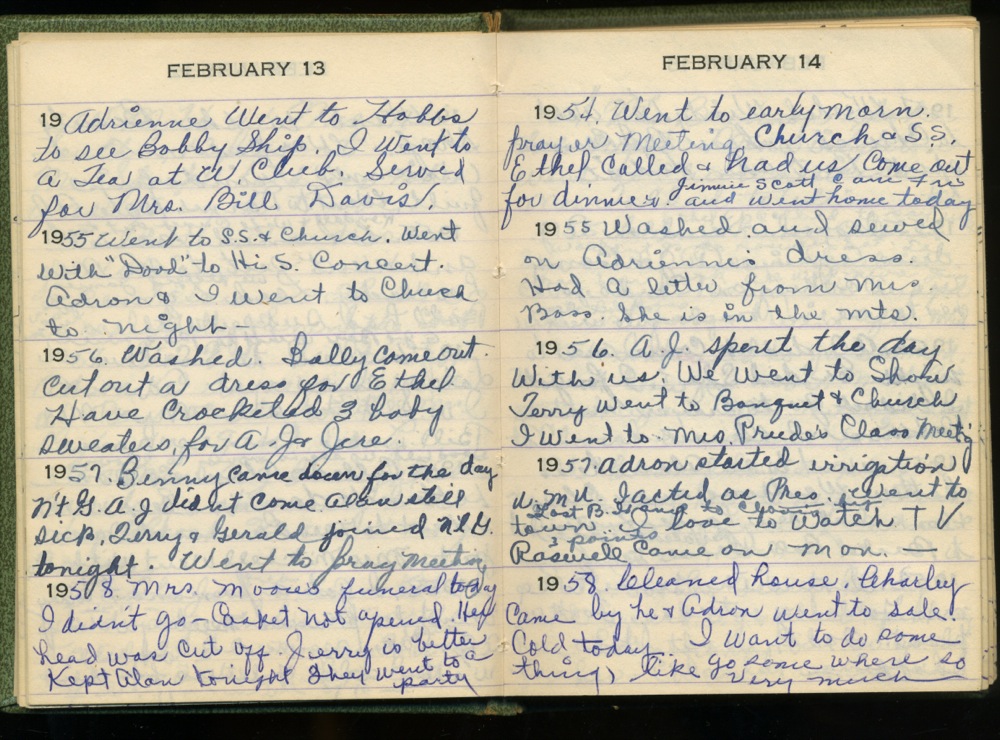 FEBRUARY 13
19 Adrienne Went to Hobbs
to see Bobby Ship. I Went to
a Tea at W. Club. Served
for Mrs. Bill Davis.
1955 Went to S.S. & Church. Went
With "Dood" to Hi S. Concert.
Adron & I Went to Chuch
to night -
1956. Washed. Sally Came out.
Cut out a dress for Ethel.
Have Crocheted 3 baby
sweaters, for A. J & Jere.
1957. Benny Came down for the day
N+G. A. J didnt Come Alan still
Sick, Terry & Gerald joined N.G.
tonight. Went to pray Meeting
1958. Mrs. Moores funeral today
I didn't go - Casket not opened. Her
head was cut off. Jerry is better
Kept Alan tonight They Went to a
party
FEBRUARY 14
1954. Went to early Morn.
prayer Meeting, Church & S.S.
Ethel Called & had us Come out
for dinner. Jimmie Scott Came Fri
and Went home today
1955 Washed and sewed
on Adrienne's dress.
Had a letter from Mrs.
Bass. She is in the mts.
1956. A. J. spent the day
With us. We Went to Show
Terry Went to Banquet & Church
I Went to Mrs. Prude's Class Meet'g
1957. Adron started irrigation
W. M. U. I acted as Pres. Went to
Lost B. to
town. I love to Watch TV
3 points
Roswell Came on Mon. —
1958. Cleaned house. Charley
Came by he & Adron Went to sale.
Cold today. I Want to do some
thing, like go some where so
very much